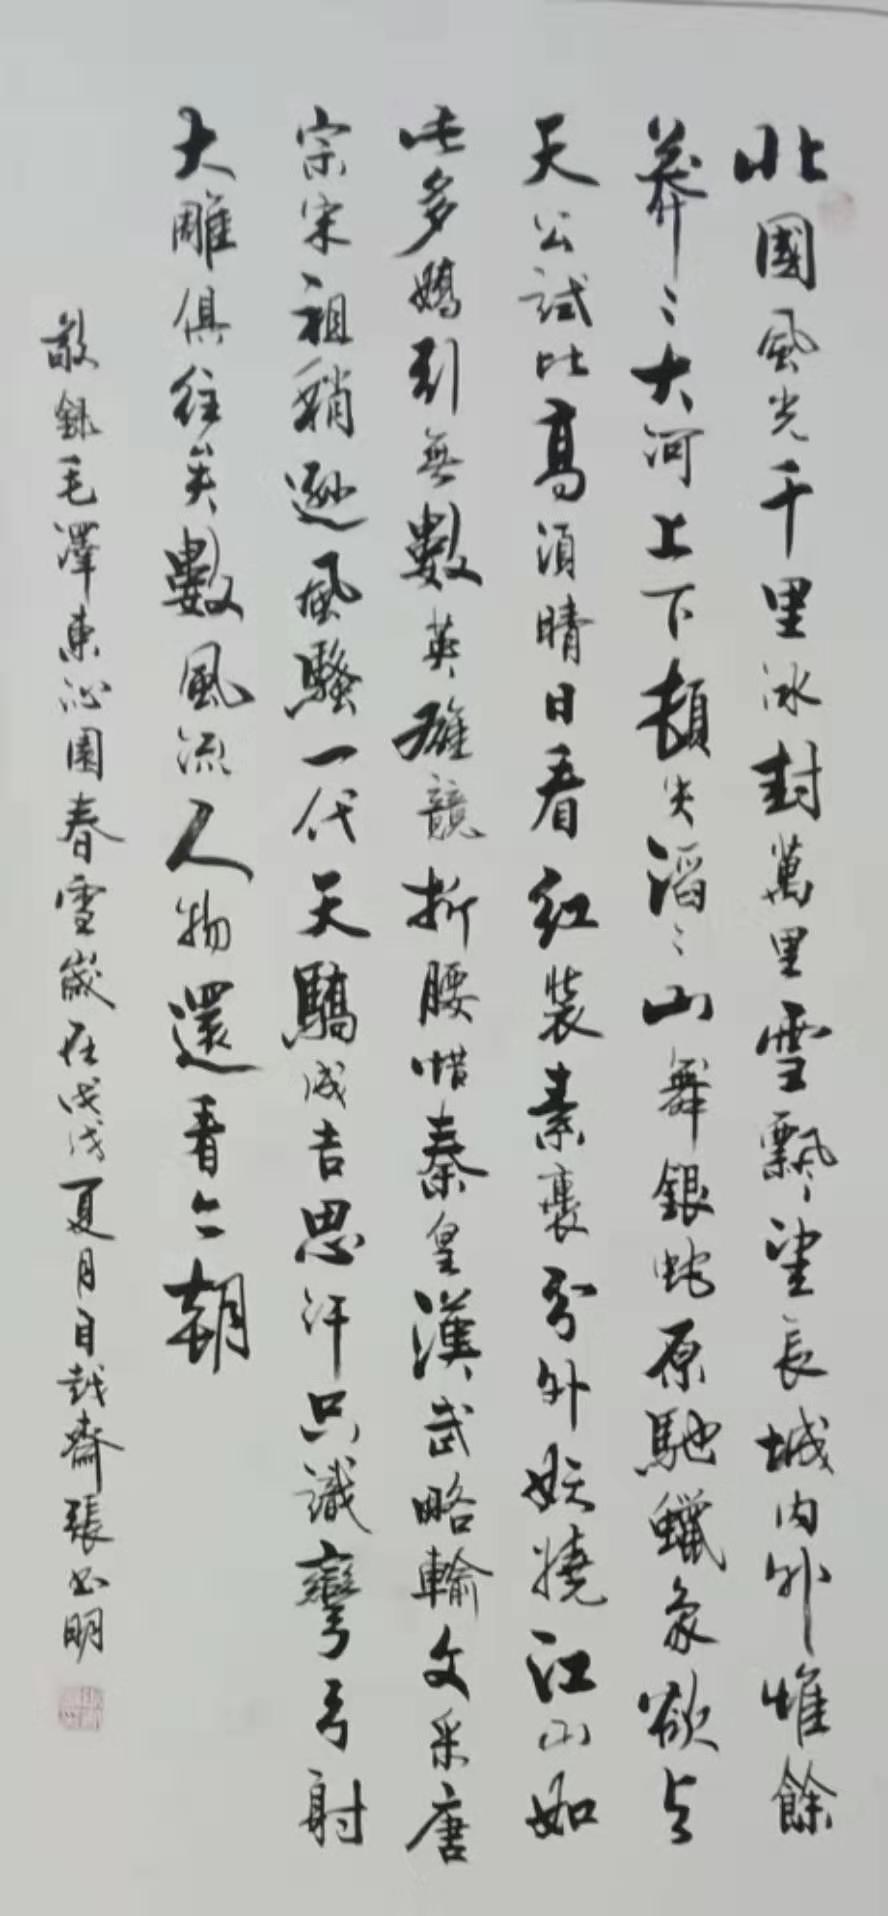 北國風光千里冰封萬里雪飄望長城内外惟餘
莽〻大河上下頓失滔〻山舞銀蛇原馳蠟象欲与
天公試比高須晴日看紅裝素裹分外妖嬈江山如
此多嬌引無數英雄競折腰惜秦皇漢武略輸文采唐
宗宋祖稍遜風騷一代天驕成吉思汗只識彎弓射
大雕俱往矣數風流人物還看今朝
敬錄毛澤東沁園春雪歲在戊戌夏月自越齋張明